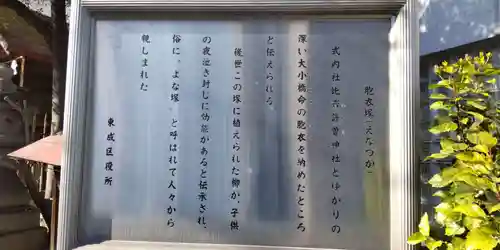 胞衣塚(えなづか)
式内社比売許曽神社とゆかりの
深い大小橋命の胞衣を納めたところ
と伝えられる。
後世この塚に植えられた柳が、子供
の夜泣き封じに効能があると伝承され、
俗に、よな塚、と呼ばれて人々から
親しまれた
東成区役所